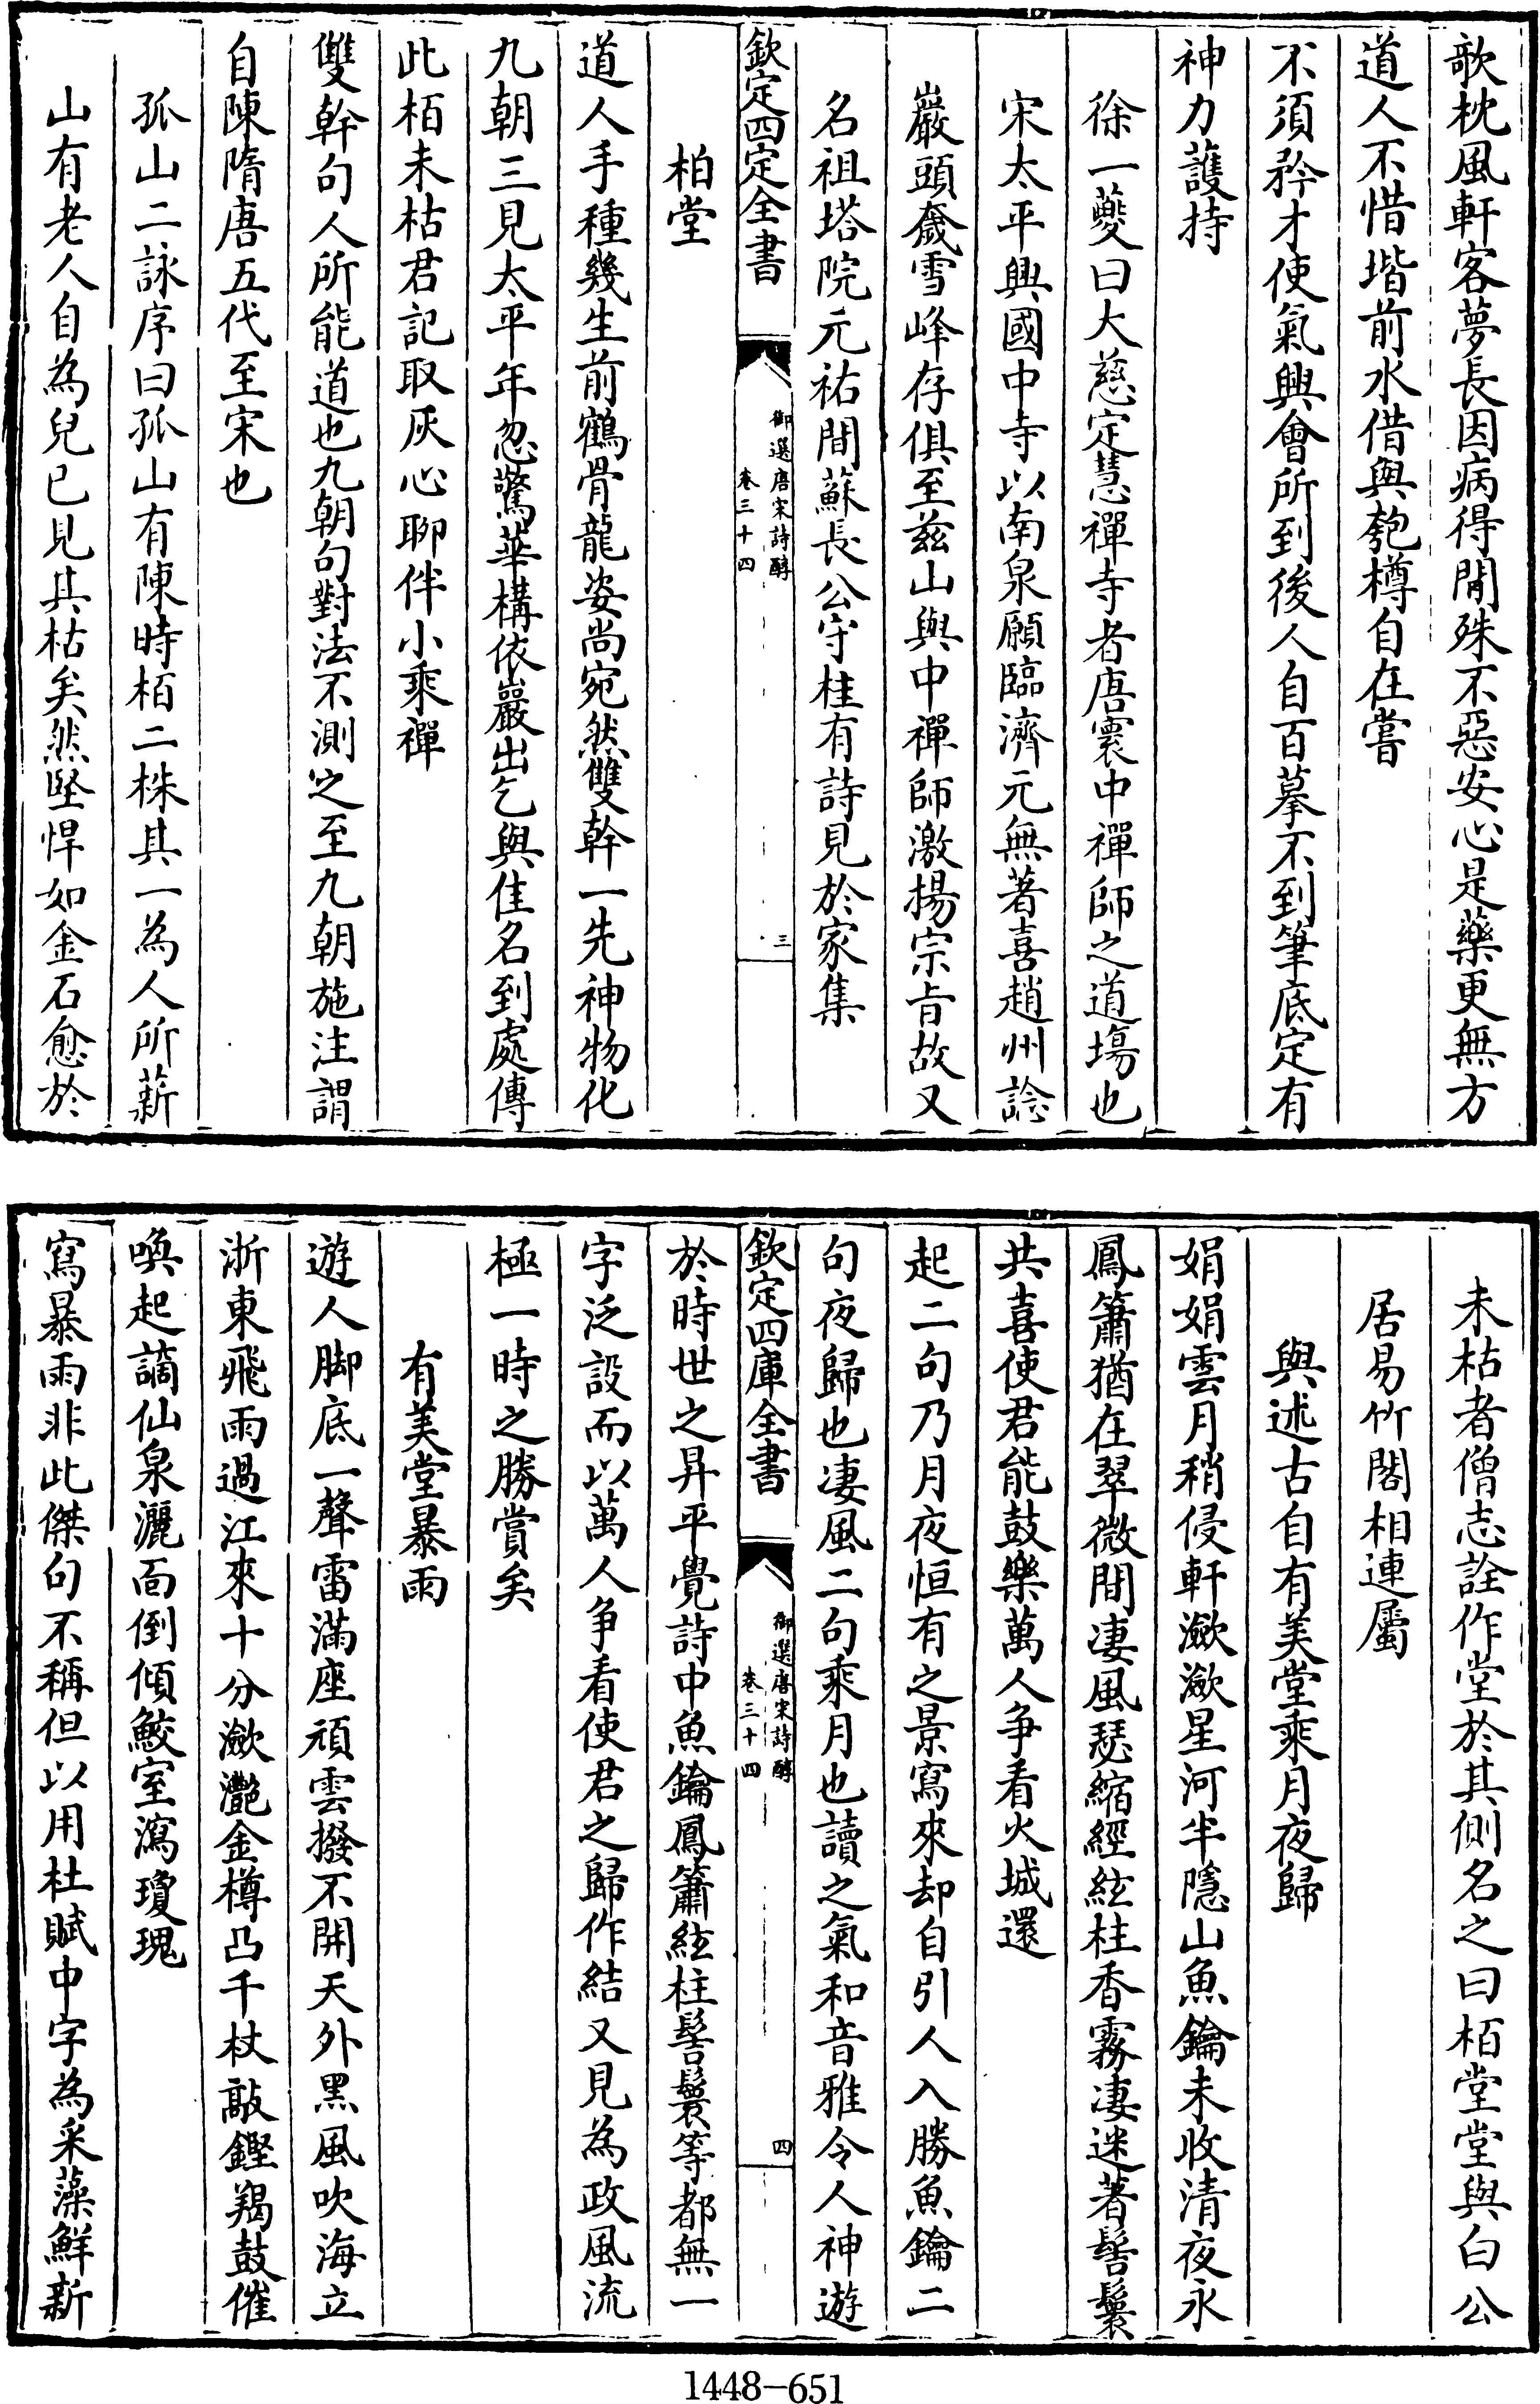 歌枕風軒客夢長因病得閒殊不惡安心是藥更無方
道人不惜堦前水借與匏樽自在嘗
不須矜才使氣興會所到後人自百摹不到筆底定有
神力護持
徐一夔曰大慈定慧禪寺者唐寰中禪師之道塲也
宋太平興國中寺以南泉願臨濟元無著喜趙州諗
巖頭奯雪峰存俱至茲山與中禪師激揚宗㫖故又
名祖塔院元祐間蘇長公守桂有詩見於家集
欽定四定全書
御選唐宋詩醇
卷三十四
三
柏堂
道人手種幾生前鶴骨龍姿尚宛然雙幹一先神物化
九朝三見太平年忽驚華構依巖出乞與佳名到處傳
此栢未枯君記取灰心聊伴小乘禪
雙幹句人所能道也九朝句對法不測之至九朝施注謂
自陳隋唐五代至宋也
孤山二詠序曰孤山有陳時栢二株其一為人所薪
山有老人自為兒已見其枯矣然堅悍如金石愈於
未枯者僧志詮作堂於其側名之曰栢堂堂與白公
居易竹閣相連屬
與述古自有美堂乘月夜歸
娟娟雲月稍侵軒瀲瀲星河半隱山魚鑰未收清夜永
鳳簫猶在翠微間凄風瑟縮經絃柱香霧凄迷著髻鬟
共喜使君能鼓樂萬人爭看火城還
起二句乃月夜恒有之景寫來却自引人入勝魚鑰二
句夜歸也凄風二句乘月也讀之氣和音雅令人神遊
欽定四庫全書
御選唐宋詩醇
卷三十四
四
於時世之昇平覺詩中魚鑰鳳簫絃柱髻鬟等都無一
字泛設而以萬人爭看使君之歸作結又見為政風流
極一時之勝賞矣
有美堂暴雨
遊人脚底一聲雷滿座頑雲撥不開天外黑風吹海立
浙東飛雨過江來十分瀲灔金樽凸千杖敲鏗羯鼓催
喚起謫仙泉灑面倒傾鮫室瀉瓊瑰
寫暴雨非此傑句不稱但以用杜賦中字為采藻鮮新
1448-651